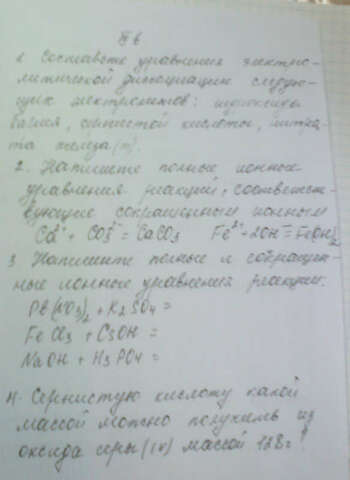 1. Составьте уравнения электро-
литической диссоциации следую-
щих электролитов: гидроксида
бария, сернистой кислоты, нитра-
та железа (III).
2. Напишите полные ионные
уравнения реакций, соответств-
вующие сокращенным ионным
Ca²⁺ + CO₃²⁻ = CaCO₃ Fe²⁺ + 2OH⁻ = Fe(OH)₂
3 Напишите полные и сокращен-
ные ионные уравнения реакции:
Pb(NO₃)₂ + K₂SO₄ =
FeCl₃ + CsOH =
NaOH + H₃PO₄ =
4. Сернистую кислоту какой
массой можно получить из
оксида серы (IV) массой